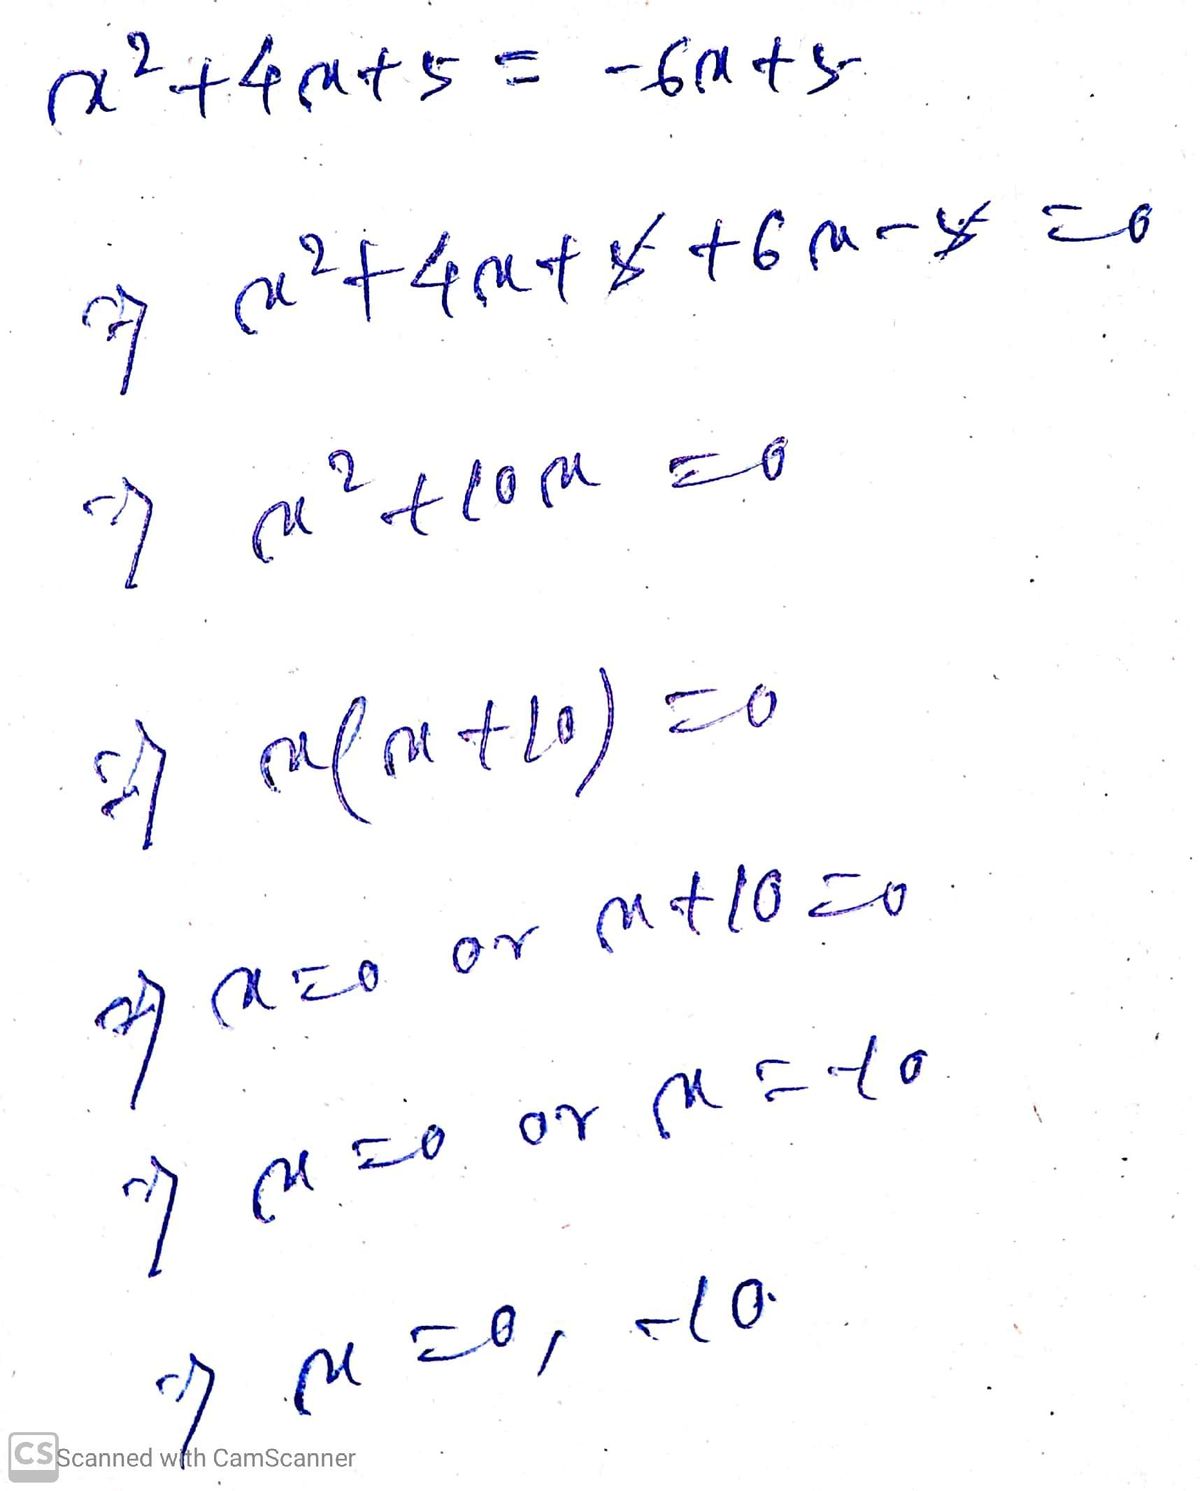 x² + 4x + 5 = -6x + 5
⇒ x² + 4x + 5 + 6x - 5 = 0
⇒ x² + 10x = 0
⇒ x(x + 10) = 0
⇒ x = 0 or x + 10 = 0
⇒ x = 0 or x = -10
⇒ x = 0, -10
CS Scanned with CamScanner